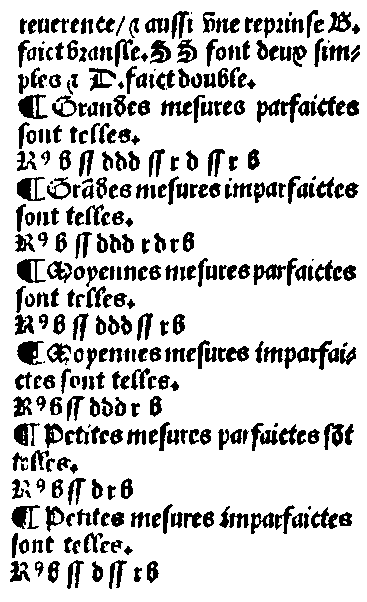 reuerence/ ⁊ aussi vne reprinse B.
faict bransle. S S font deux sim-
ples ⁊ D. faict double.
¶ Grandes mesures parfaictes
sont telles.
R⁹ b ss ddd ss r d ss r b
¶ Grādes mesures imparfaictes
sont telles.
R⁹ b ss ddd r d r b
¶ Moyennes mesures parfaictes
sont telles.
R⁹ b ss ddd ss r b
¶ Moyennes mesures imparfai-
ctes sont telles.
R⁹ b ss ddd r b
¶ Petites mesures parfaictes sōt
telles.
R⁹ b ss d r b
¶ Petites mesures imparfaictes
sont telles.
R⁹ b ss d ss r b